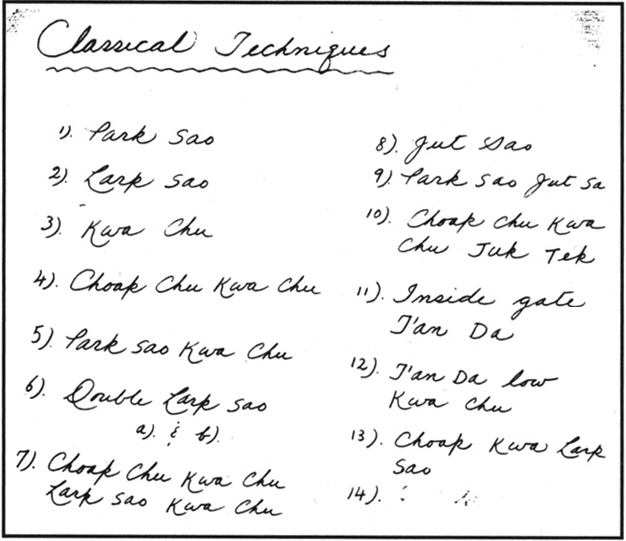 Classical Techniques
1). Park Sao
2). Larp Sao
3). Kwa Chu
4). Choap Chu Kwa Chu
5). Park Sao Kwa Chu
6). Double Larp Sao
a). & b).
7). Choap Chu Kwa Chu
Larp Sao Kwa Chu
8). Jut Sao
9). Park Sao Jut Sa
10). Choap Chu Kwa
Chu Juk Tek
11). Inside gate
T'an Da
12). T'an Da low
Kwa Chu
13). Choap Kwa Larp
Sao
14). :